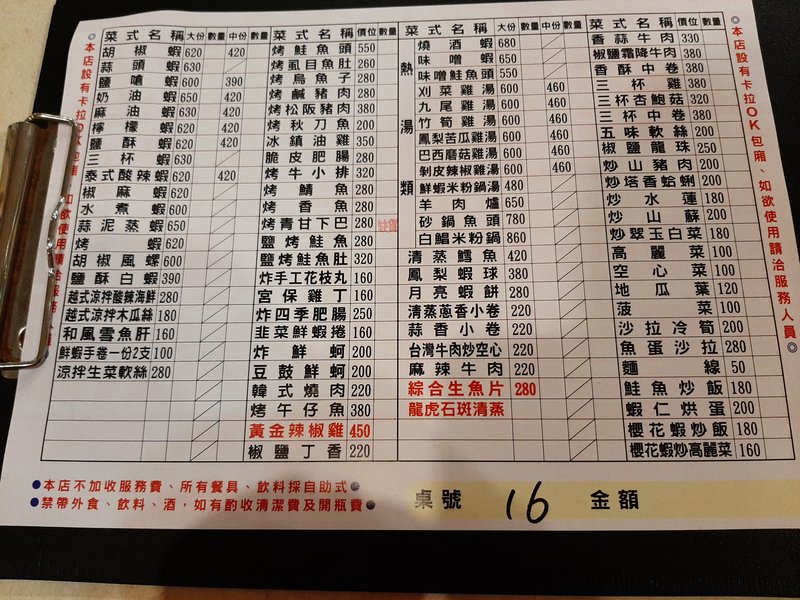 本店設有卡拉OK包廂、如欲使用請洽服務人員
菜式名稱 大份 數量 中份 數量
胡椒蝦 620 420
蒜頭蝦 630
鹽嗆蝦 600 390
奶油蝦 650 420
麻油蝦 630 420
檸檬蝦 620 420
鹽酥蝦 620 420
三杯蝦 630
泰式酸辣蝦 620 420
椒麻蝦 620
水煮蝦 600
蒜泥蒸蝦 650
烤蝦 620
胡椒風螺 600
鹽酥白蝦 390
越式涼拌酸辣海鮮 280
越式涼拌木瓜絲 180
和風雪魚肝 160
鮮蝦手卷一份2支 100
涼拌生菜軟絲 280
菜式名稱 價位 數量
烤鮭魚頭 550
烤虱目魚肚 260
烤烏魚子 280
烤鹹豬肉 280
烤松阪豬肉 380
烤秋刀魚 200
冰鎮油雞 350
脆皮肥腸 280
烤牛小排 320
烤鯖魚 280
烤香魚 280
烤青甘下巴 280
鹽烤鮭魚 280
鹽烤鮭魚肚 320
炸手工花枝丸 160
宮保雞丁 160
炸四季肥腸 250
韭菜鮮蝦捲 160
炸鮮蚵 200
豆鼓鮮蚵 200
韓式燒肉 220
烤午仔魚 380
黃金辣椒雞 450
椒鹽丁香 220
菜式名稱 大份 數量 中份 數量
熱湯類
燒酒蝦 680
味噌蝦 650
味噌鮭魚頭 550
刈菜雞湯 560 460
九尾雞湯 560 460
竹筍雞湯 560 460
鳳梨苦瓜雞湯 560 460
巴西蘑菇雞湯 560 460
剝皮辣椒雞湯 560 460
鮮蝦米粉鍋湯 480
羊肉爐 650
砂鍋魚頭 780
白鯧米粉鍋 860
清蒸鱈魚 420
鳳梨蝦球 380
月亮蝦餅 280
清蒸蔥香小卷 220
蒜香小卷 220
台灣牛肉炒空心 220
麻辣牛肉 220
綜合生魚片 280
龍虎石斑清蒸
菜式名稱 價位 數量
香蒜牛肉 330
椒鹽霜降牛肉 380
香酥中卷 380
三杯雞 380
三杯杏鮑菇 320
三杯中卷 380
五味軟絲 200
椒鹽龍珠 250
炒山豬肉 200
炒塔香蛤蜊 200
炒水蓮 180
炒山蘇 200
炒翠玉白菜 180
高麗菜 100
空心菜 100
地瓜葉 120
菠菜 100
沙拉冷筍 200
魚蛋沙拉 280
麵線 50
鮭魚炒飯 180
蝦仁烘蛋 200
櫻花蝦炒飯 180
櫻花蝦炒高麗菜 160
本店設有卡拉OK包廂、如欲使用請洽服務人員
本店不加收服務費、所有餐具、飲料採自助式
禁帶外食、飲料、酒，如有酌收清潔費及開瓶費
桌號 16 金額